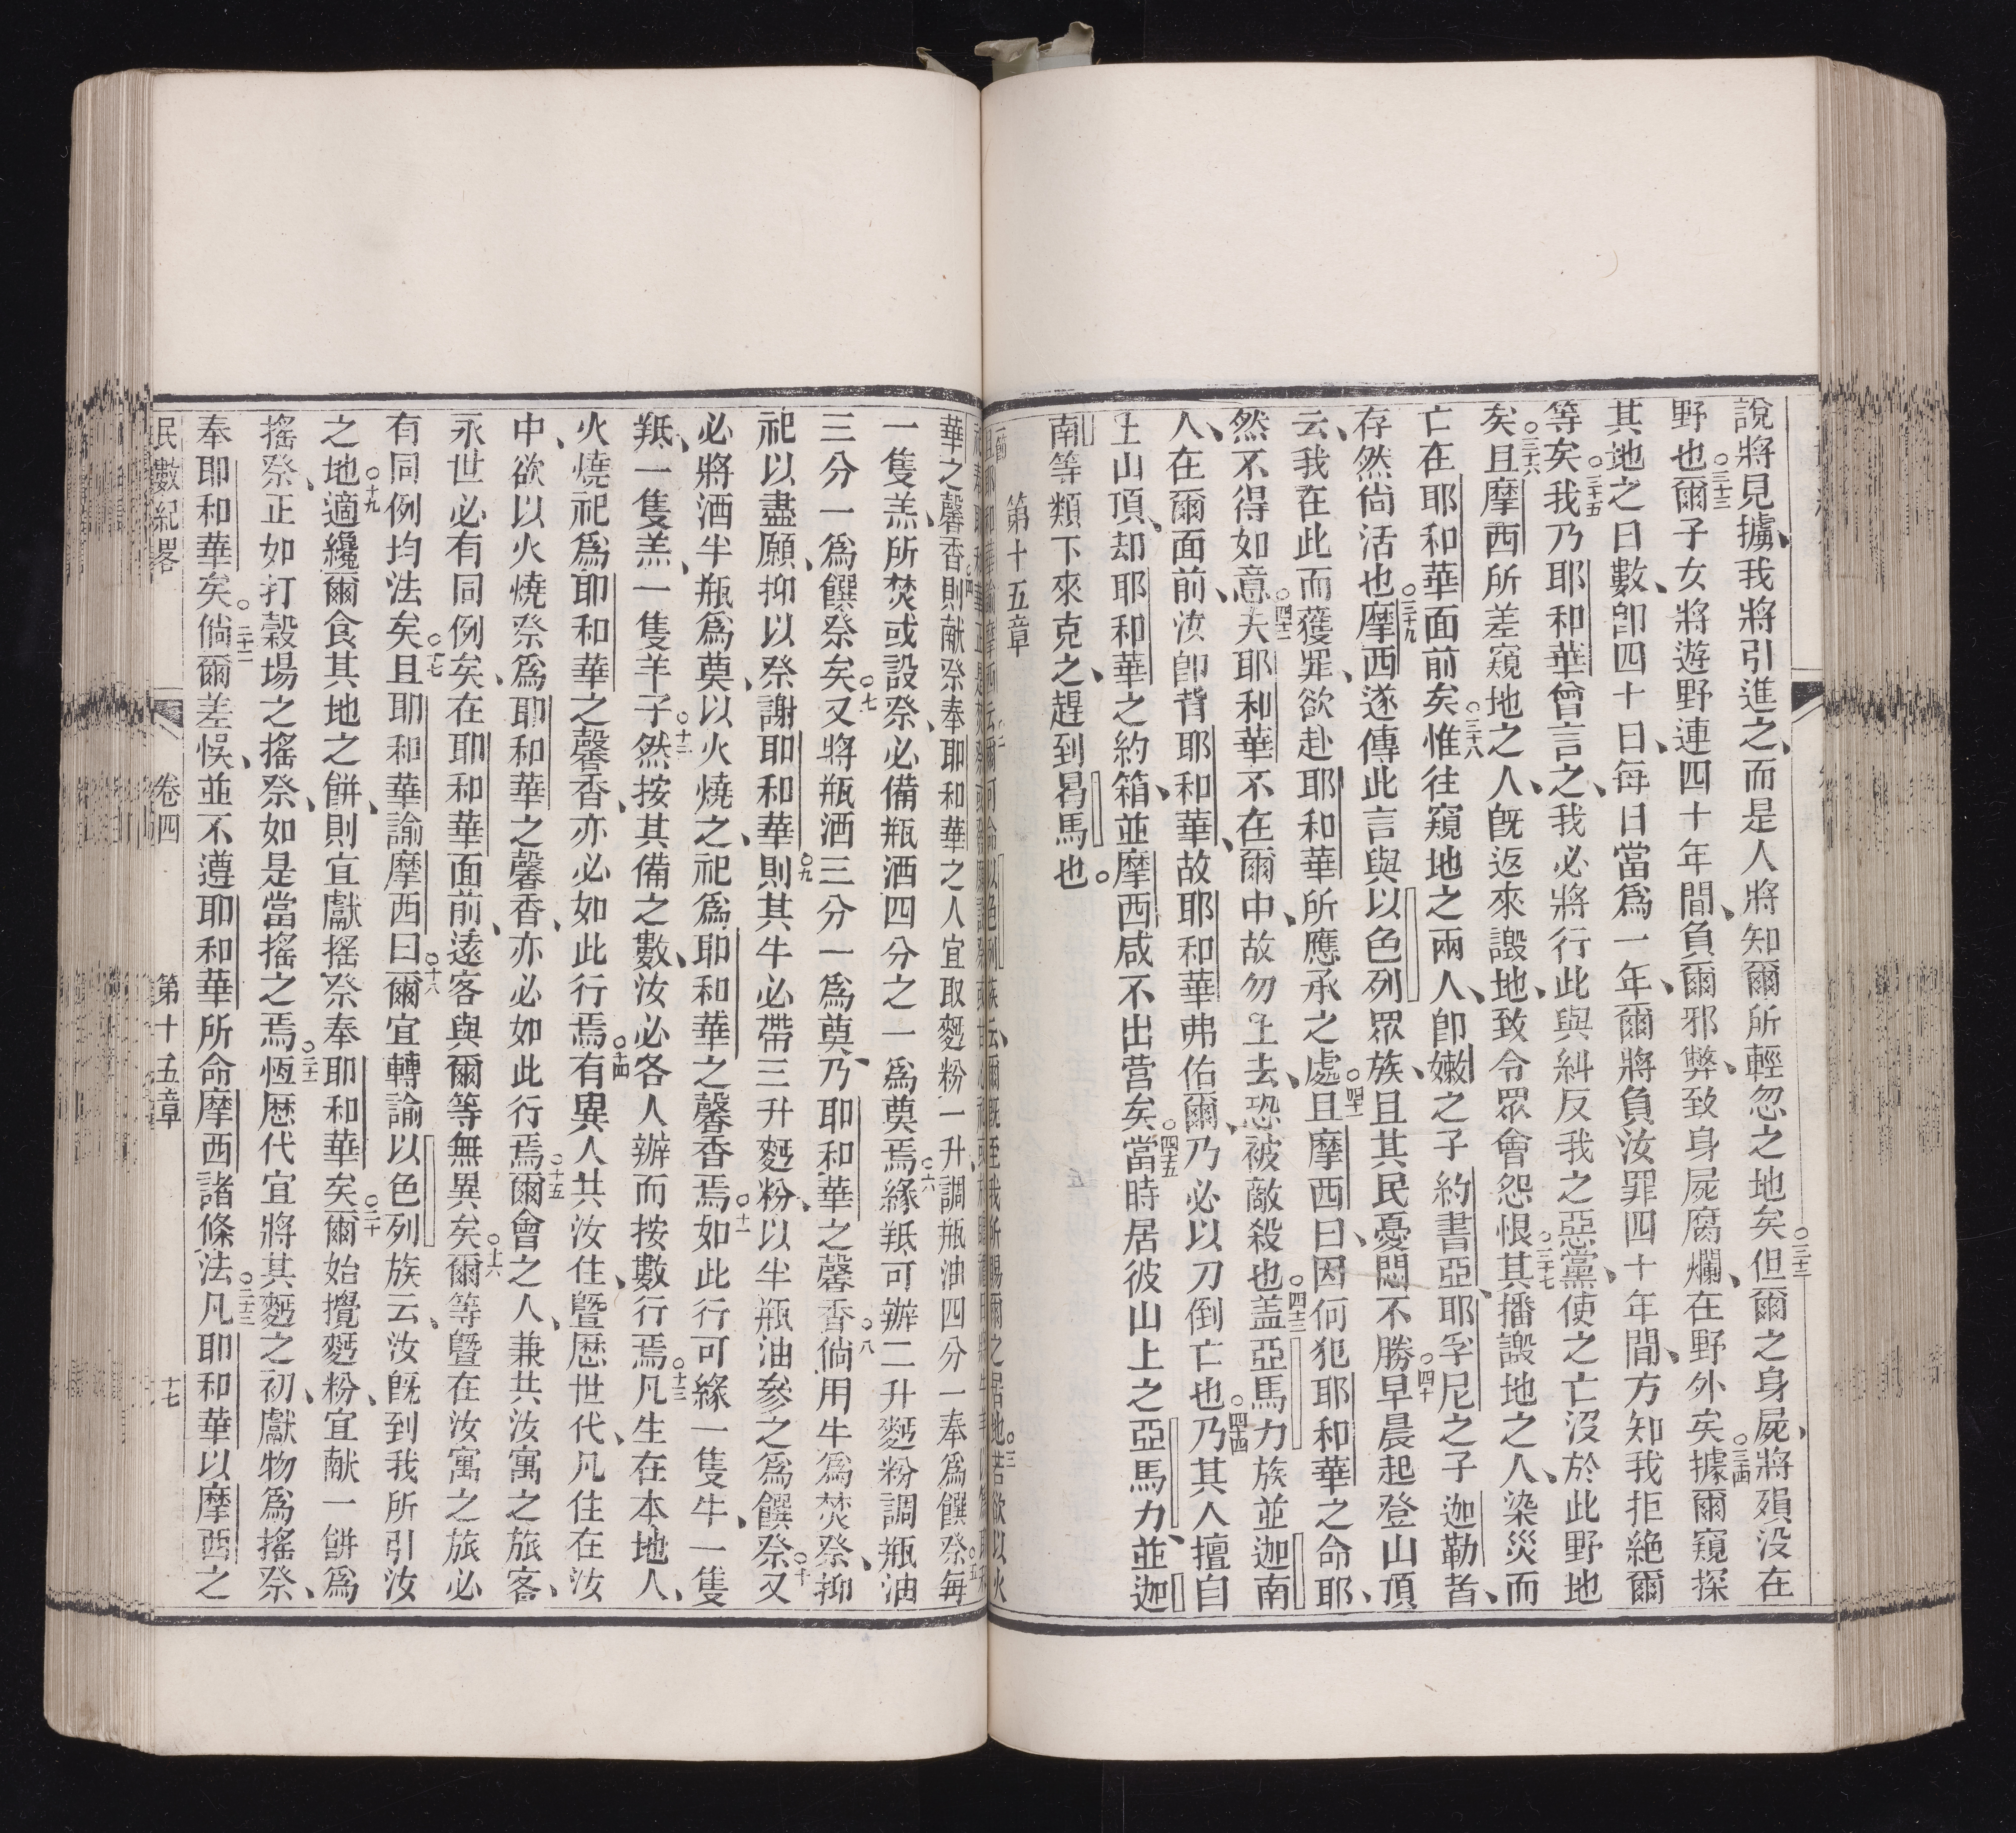 說將見擄、我將引進之、而是人將知爾所輕忽之地矣○三十二但爾之身屍、將殞没在
野也○三十三爾子女將遊野連四十年間、負爾邪弊、致身屍腐爛、在野外矣○三十四據爾窺探
其地之日數、卽四十日、每日當爲一年、爾將負汝罪四十年間、方知我拒絶爾
等矣○三十五我乃耶和華曾言之、我必將行此與糾反我之惡黨、使之亡沒於此野地
矣○三十六且摩西所差窺地之人、旣返來譭地、致令眾會怨恨○三十七其播譭地之人、染災而
亡在耶和華面前矣○三十八惟往窺地之兩人、卽嫩之子約書亞、耶孚尼之子迦勒者、
存然尙活也○三十九摩西遂傳此言與以色列眾族、且其民憂悶不勝○四十早晨起登山頂
云、我在此而獲罪、欲赴耶和華所應承之處○四十一且摩西曰、因何犯耶和華之命耶、
然不得如意、○四十二夫耶和華不在爾中、故勿上去、恐被敵殺也○四十三盖亞馬力族並迦南
人、在爾面前、汝卽背耶和華、故耶和華弗佑爾、乃必以刀倒亡也○四十四乃其人擅自
上山頂、却耶和華之約箱、並摩西咸不出营矣○四十五當時居彼山上之亞馬力、並迦
南等類下來克之、趕到曷馬也。
第十五章
華之馨香○四則献祭奉耶和華之人宜取麪粉一升、調瓶油四分一奉爲饌祭○五每
一隻羔、所焚或設祭、必備瓶酒四分之一爲奠焉○六緣羝可辦二升麪粉調瓶油
三分一爲饌祭矣○七又將瓶酒三分一爲奠、乃耶和華之馨香○八倘用牛爲焚祭、抑
祀以盡願、抑以祭謝耶和華○九則其牛必帶三升麪粉、以半瓶油參之爲饌祭○十又
必將酒半瓶爲奠、以火燒之、祀爲耶和華之馨香焉○十一如此行可緣一隻牛、一隻
羝、一隻羔、一隻羊子○十二然按其備之數、汝必各人辦而按數行焉○十三凡生在本地人、
火燒祀爲耶和華之馨香、亦必如此行焉○十四有異人共汝住、曁歷世代、凡住在汝
中、欲以火燒祭爲耶和華之馨香、亦必如此行焉○十五爾會之人、兼共汝寓之旅客、
永世必有同例矣、在耶和華面前、遠客與爾等無異矣○十六爾等曁在汝寓之旅必
有同例均法矣○十七且耶和華諭摩西曰○十八爾宜轉諭以色列族云、汝旣到我所引汝
之地○十九適纔爾食其地之餅、則宜獻搖祭奉耶和華矣○二十爾始攪麪粉、宜献一餅爲
搖祭、正如打榖場之搖祭、如是當搖之焉○二十一恆歷代宜將其麪之初、獻物爲搖祭、
奉耶和華矣○二十二倘爾差悞、並不遵耶和華所命摩西諸條法○二十三凡耶和華以摩西之
民數紀畧 卷四 第十五章 十七